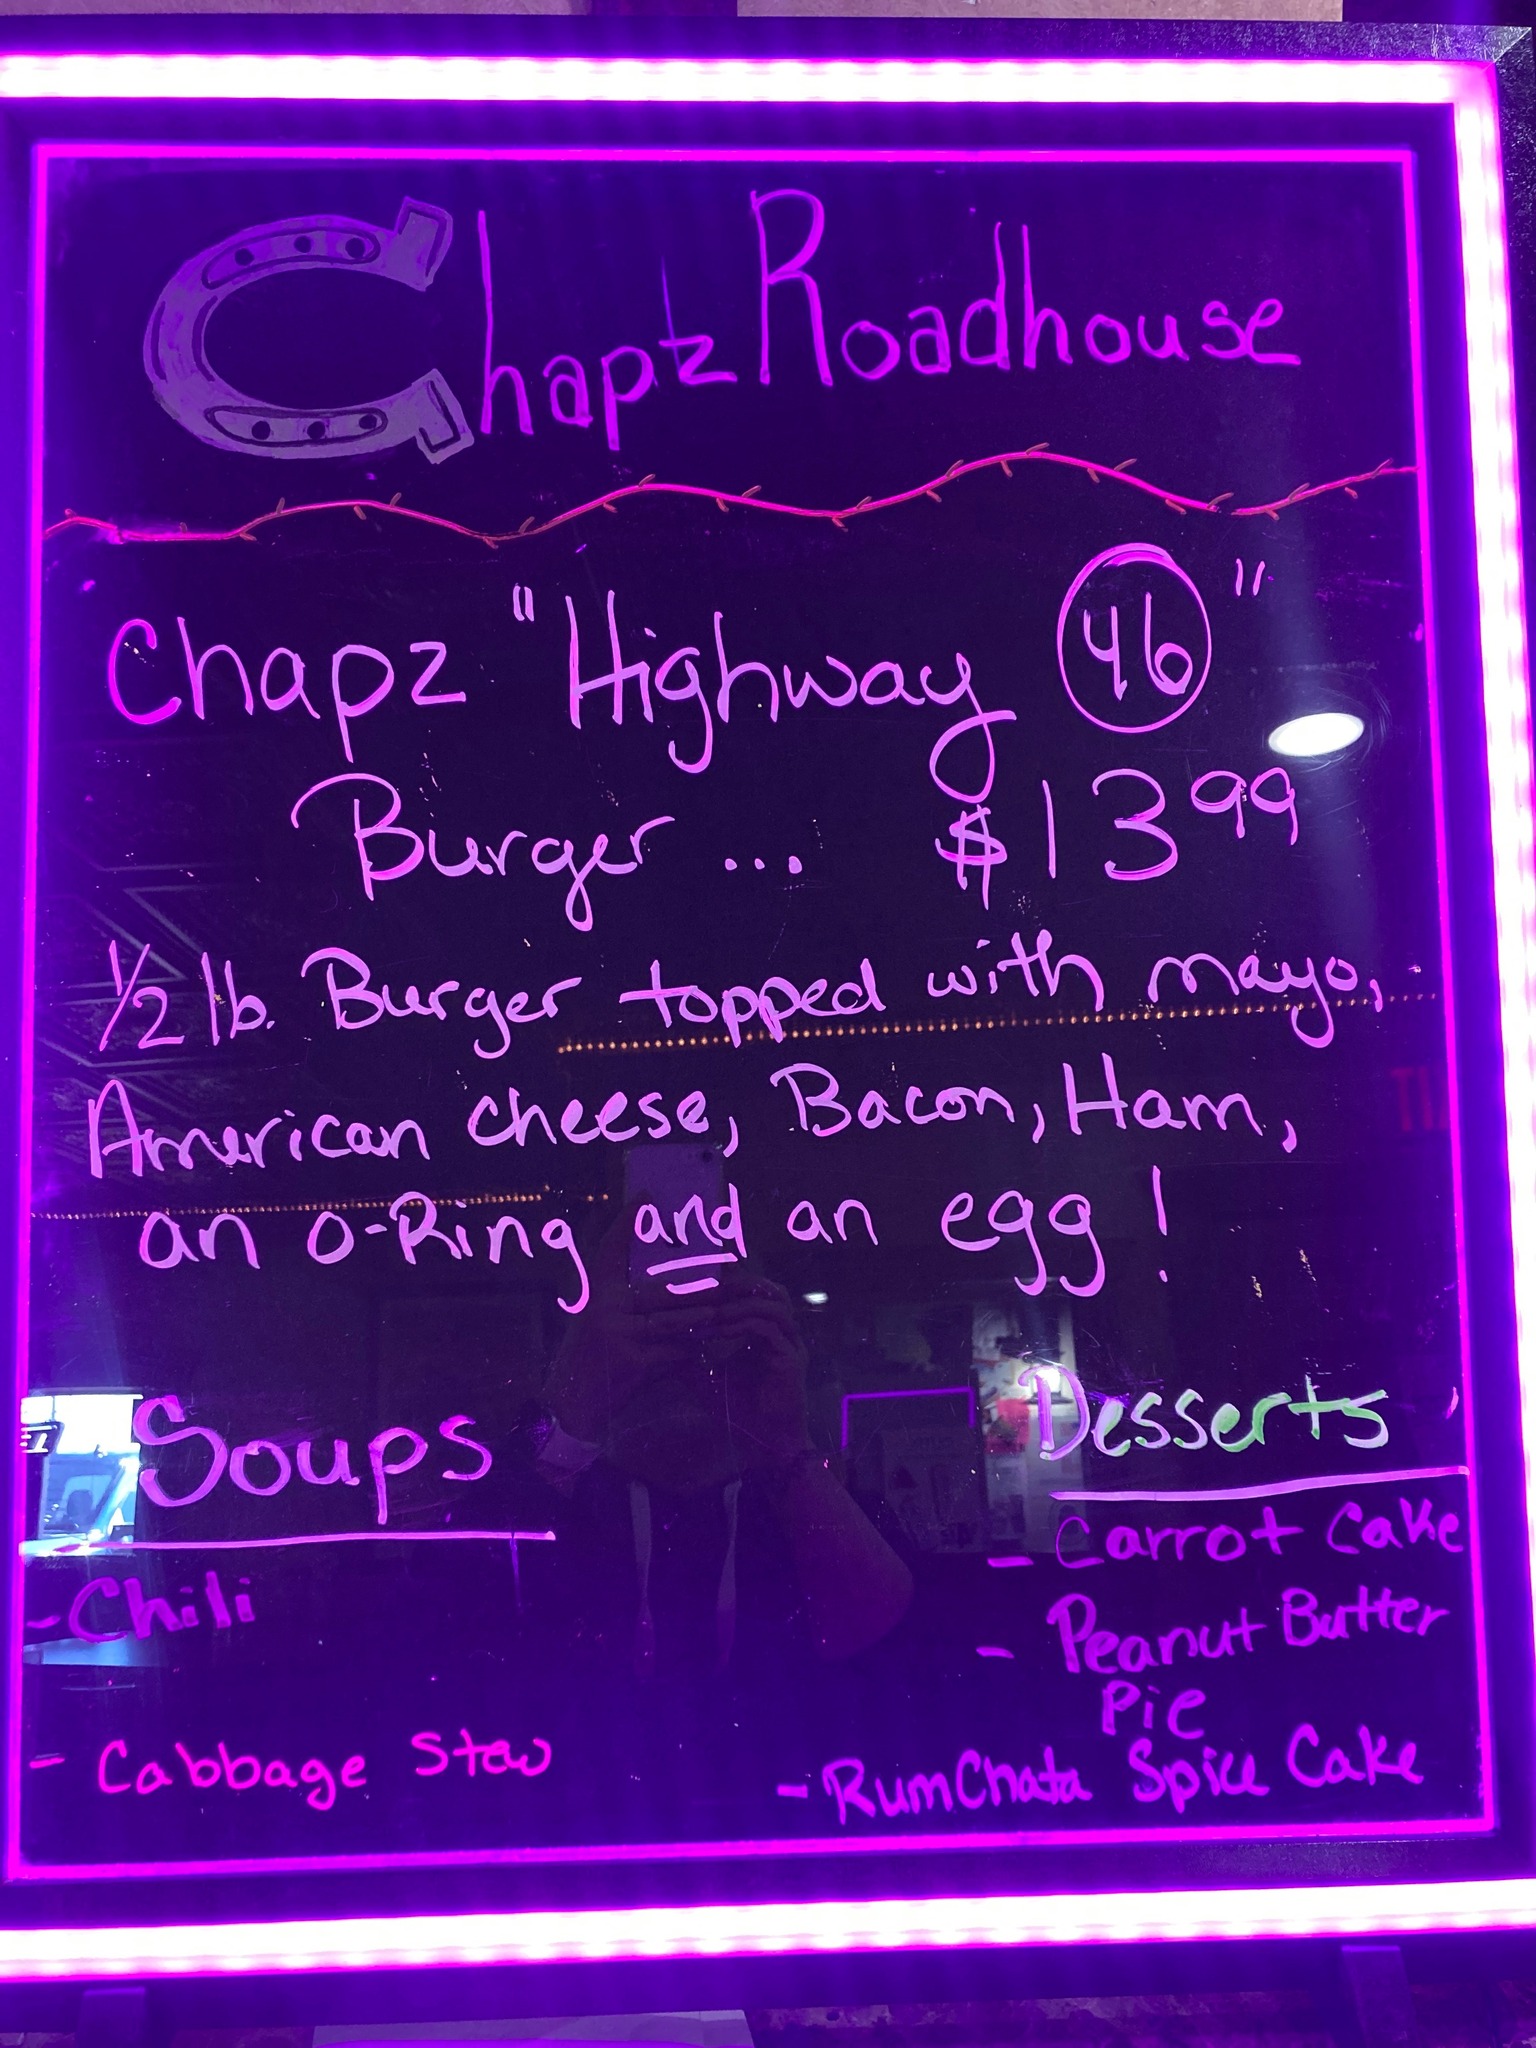 Chapz Roadhouse
Chapz "Highway 46"
Burger ... $13 99
1/2 lb. Burger topped with mayo,
American cheese, Bacon, Ham,
an o-Ring and an egg!
Soups
- Chili
- Cabbage Stew
Desserts
- Carrot Cake
- Peanut Butter
Pie
- RumChata Spice Cake